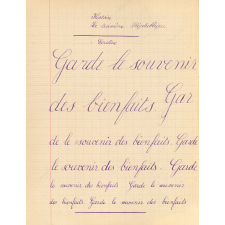 Garde le souvenir
des bienfaits. Gar
de le souvenir des bienfaits. Garde
le souvenir des bienfaits. Garde
le souvenir des bienfaits. Garde le souvenir
des bienfaits. Garde le souvenir des bienfaits